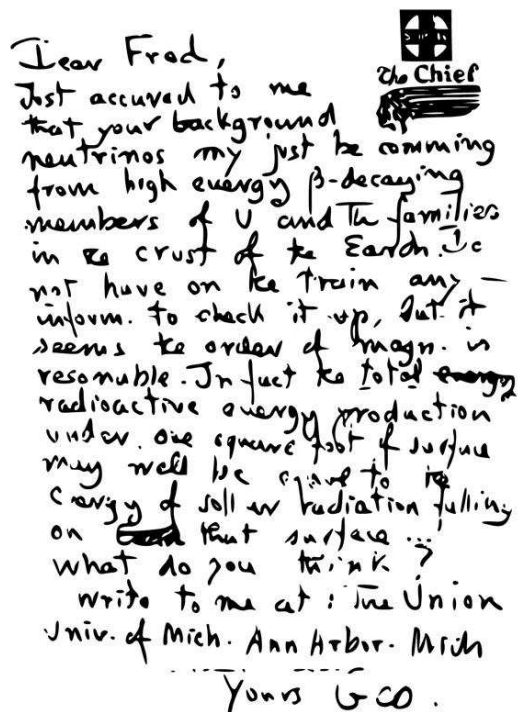 Santa Fe
The Chief
Dear Fred,
Just accured to me
that your background
neutrinos my just be comming
from high energy β-decaying
members of U and Th families
in the crust of the Earth. I do
not have on the train any
inform. to check it up, but it
seems the order of magn. is
resonable. In fact the total energy
radioactive energy production
under one square foot of surface
may well be equal to the
energy of sollar radiation falling
on that surface ...
what do you think?
write to me at: The Union
Univ. of Mich. Ann Arbor. Mich
Yours GEO.